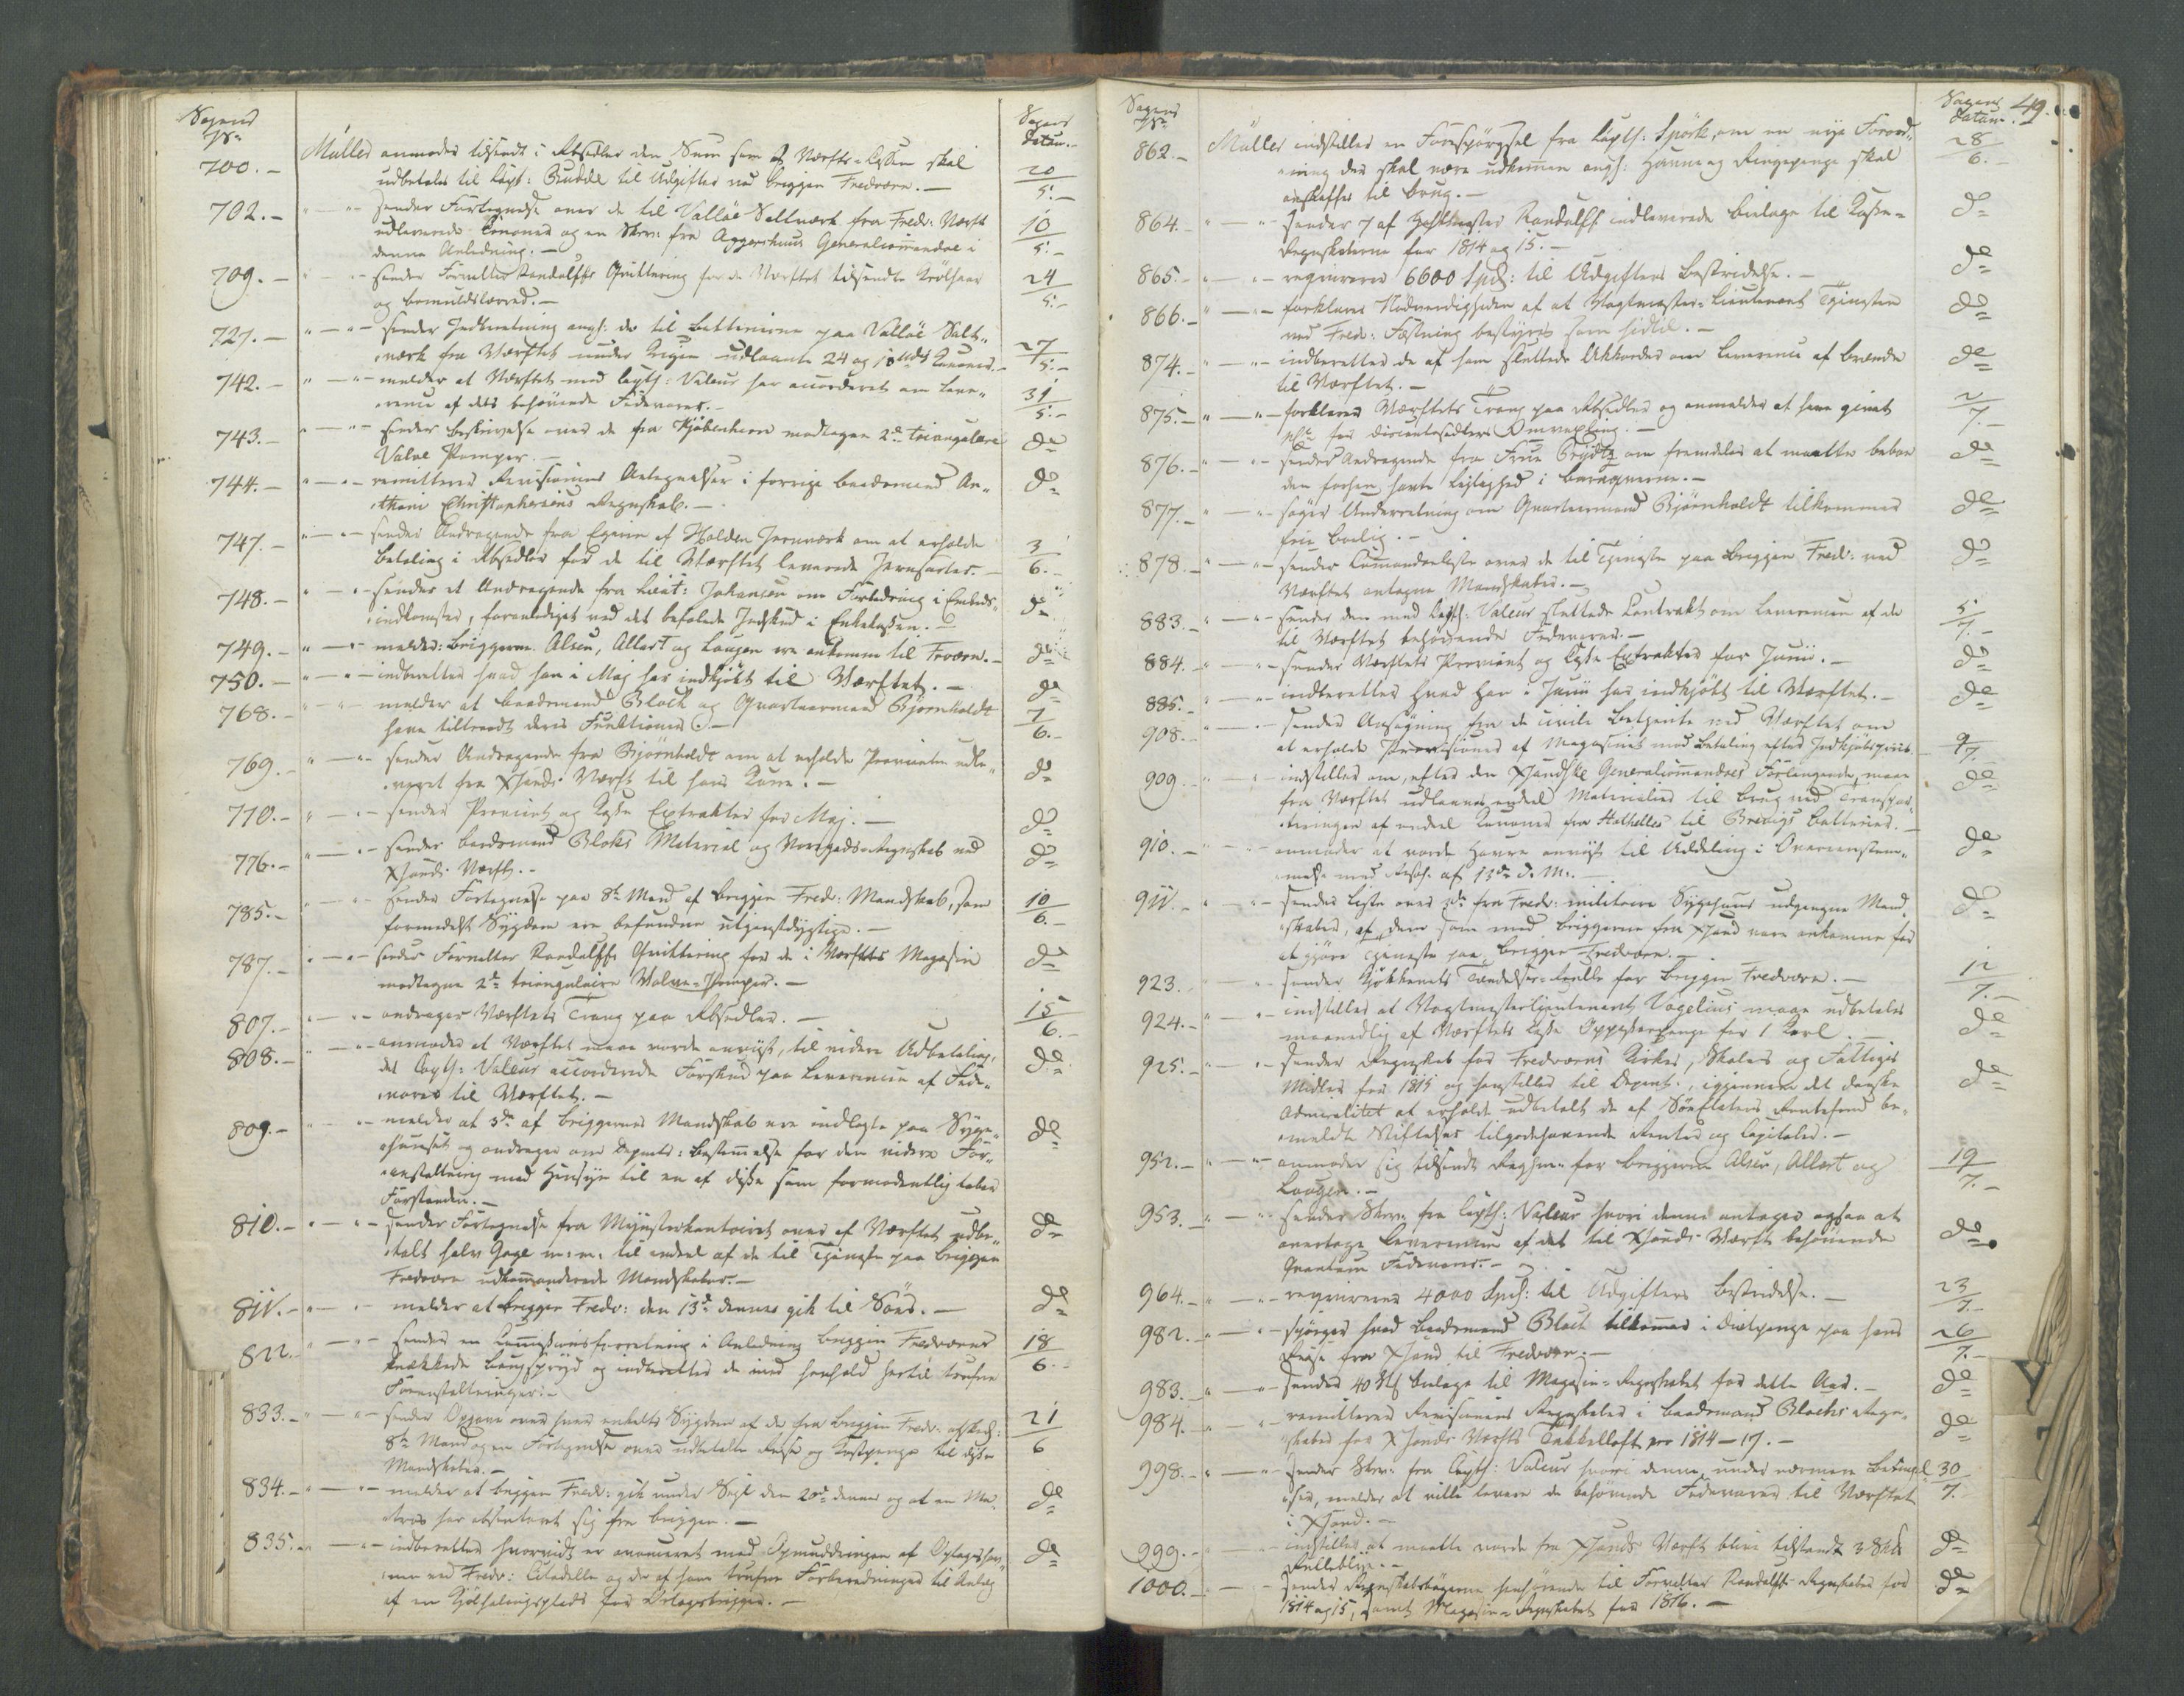 Sagens
No
Sagens
Datum.
700.- Müller anmoder tilsendt i Rbsedler den Sum som af Værfts-Cassen skal
udbetales til Capt: Budde til Udgifter ved Briggen Fredværn.- 20/5.-
702.- " sender Fortegnelse over de til Valløe Saltværk fra Fredr: Værft
udleverede Canoner og en Skr: fra Aggershuus Generalcommandoe i
denne Anledning.- 10/5.-
709.- " sender Forvalter Randulffs Qvittering for de Værftet tilsendte
og bomuldslærred.- 24/5.-
727.- " sender Indberetning angl: de til Batterierne paa Valløe Salt-
værk fra Værftet under Krigen udlaante 24 og 18 pds Kanoner.- 27/5.-
742.- " melder at Værftet med Capt: Valeur har accorderet om Leve-
rence af dets behøvende Fedevarer.- 31/5.-
743.- " sender Beskrivelse over de fra Kjöbenhavn modtagne 2de triangulaire
Valve Pomper.- do
744.- " remitterer Revisionens Antegnelser i forrige Baadsmand An-
thoni Christophersens Regnskab.- do
747.- " sender Andragende fra Eieren af Holden Jernværk om at erholde
Betaling i Rbsedler for de til Værftet leverede Jernsorter.- 3/6.-
748.- " sender et Andragende fra Lieut: Johansen om Forbedring i Embeds-
indkomster, foranlediget ved det befalede Indskud i Enkekassen.- do
749.- " melder: Briggerne Alsen, Allart og Lougen ere ankomne til Frværn.- do
750.- " indberetter hvad han i Maj har indkjöbt til Værftet.- do
768.- " melder at Baadsmand Block og Qvarteermand Bjørnholdt
have tiltraadt deres Funktioner.- 7/6.-
769.- " sender Andragende fra Bjørnholdt om at erholde Provianten udle-
veret fra Xsands Værft til hans Kone.- do
770.- " sender Proviant og Casse Extrakter for Maj.- do
776.- " sender Baadsmand Bloks Material og Regnskab ved
Xsands Værft.- do
785.- " sender Fortegnelse paa 8te Mand af Briggen Fredr: Mandskab, som
formedelst Sygdom ere befundne utjenstdygtige.- 10/6.-
787.- " sender Forvalter Randulffs Qvittering for de i Værftets Magasin
modtagne 2de triangulaire Valve-Pomper.- do
807.- " andrager Værftets Trang paa Rbsedler.- 15/6.-
808.- " anmoder at Værftet maae vorde anviist, til videre Udbetaling,
det Capt: Valeur accorderede Forskud paa Leverencen af Fede-
varer til Værftet.- do
809.- " melder at 3de af Briggernes Mandskab ere indlagte paa Syge-
huuset og andrager om Departs: Bestemmelse for den videre For-
anstaltning med Hensyn til en af disse som formodentlig taber
Forstanden.- do
810.- " sender Fortegnelse fra Mynsterkontoiret over af Værftet udbe-
talt halv Gage m: m: til endeel af de til Tjeneste paa Briggen
Fredværn udkommanderede Mandskaber.- do
811.- " melder at Briggen Fredr: den 13de dennes gik til Søes.- do
822.- " sender en Commissionsforretning i Anledning Briggen Fredværns
knækkede Bougspryd og indberetter de med Henhold hertil trufne
Foranstaltninger.- 18/6.-
833.- " sender Opgave over hver enkelts Sygdom af de fra Briggen Fredr: afskedg:
8te Mand og en Fortegnelse over udbetalte Reise og Kostpenge til disse
Mandskaber.- 21/6
834.- " melder at Briggen Fredr: gik under Seil den 20de dennes og at en Ma-
tros har absenteret sig fra Briggen.- do
835.- " indberetter hvorvidt er avanceret med Opmuddringen af Oplagshav-
nen ved Fredr: Citadelle og de af ham trufne Forberedninger til Anlæg
af en Kjølhalingsplads for Orlogsbrigger.- do
Sagens
No
Sagens
Datum
49.
862.- Müller indstiller en Forespørgsel fra Capt: Spörk, om en nye Forord-
ning der skal være udkommen angl: Havne og Ringepenge skal
anskaffes til Brug.- 28/6.-
864.- " sender 7 af Randulff indleverede Bielage til Casse-
Regnskaberne for 1814 og 15.- do
865.- " reqvirerer 6600 Spd: til Udgifters Bestridelse.- do
866.- " forklarer Nødvendigheden af at Vagtmester-Lieutenant Tjenesten
ved Fredr: Fæstning bestyres som hidtil.- do
874.- " indberetter de af ham sluttede Akkorder om Leverence af Brænde
til Værftet.- do
875.- " forklarer Værftets Trang paa Rbsedler og anmelder at have givet
for Omvexling.- 2/7.-
876.- " sender Andragende fra Frue Grydtz om fremdeles at maatte beboe
den forhen havte Leilighed i Baraqverne.- do
877.- " søger Underretning om Qvarteermand Bjørnholdt tilkommer
frie Bolig.- do
878.- " sender Commandoliste over de til Tjeneste paa Briggen Fredr: ved
Værftet antagne Mandskaber.- do
883.- " sender den med Capt: Valeur sluttede Contrakt om Leverencen af de
til Værftet behøvende Fedevarer.- 5/7.-
884.- " sender Værftets Proviant og Casse Extrakter for Junii.- do
885.- " indberetter hvad han i Junii har indkjöbt til Værftet.- do
908.- " sender Ansøgning fra de civile Betjente ved Værftet om
at erholde Provisioner af Magasinet mod Betaling efter Indkjöbspriis.- 9/7.
909.- " indstiller om, efter den Xsandske Generalcommandoes Forlangende, maae
fra Værftet udlaanes endeel Materialier til Brug ved Transpor-
teringen af endeel Canoner fra Stathelles til Brevigs Batterier.- do
910.- " anmoder at vorde Havre anviist til Uddeling i Overensstem-
melse med Resol: af 13de d. M.- do
911.- " sender Liste over de fra Fredr: militaire Sygehuus udgangne Mand-
skaber, af dem som med Briggerne fra Xsand vare ankomne for
at gjöre Tjeneste paa Briggen Fredværn.- do
923.- " sender Kjøkkenets Tændelser-Rulle for Briggen Fredværn.- 12/7.-
924.- " indstiller at Vagtmesterlieutenant Vogelius maae udbetales
maanedlig af Værftets Casse Oppasserpenge for 1 Karl.- do
925.- " sender Regnskab for Fredværns Kirkes, Skoles og Fattiges
Midler for 1815 og henstiller til Depart:, igjennem det danske
Admiralitet at erholde udbetalt de af SøeEtatens Rentefond be-
meldte Stiftelser tilgodehavende Renter og Capitaler.- do
952.- " anmoder sig tilsendt for Briggerne Alsen, Allart og
Lougen.- 19/7.-
953.- " sender Skr: fra Capt: Valeur hvori denne antager ogsaa at
overtage Leverencen af det til Xsands Værft behøvende
Qvantum Fedevarer.- do
964.- " reqvirerer 4000 Spd: til Udgifters Bestridelse.- 23/7.-
982.- " spørger hvad Baadsmand Block tilkommer i Diætpenge paa hans
Reise fra Xsand til Fredværn.- 26/7.-
983.- " sender 40 Stk Bielage til Magasin-Regnskabet for dette Aar.- do
984.- " remitterer Revisionens Regnskaber i Baadsmand Blocks Regn-
skaber for Xsands Værfts Takkelloft pro 1814-17.- do
998.- " sender Skr: fra Capt: Valeur hvori denne, under nærmere Betingel-
ser, melder at ville levere de behøvende Fedevarer til Værftet
i Xsand.- 30/7.
999.- " indstiller at maatte vorde fra Xsands Værft blive tilsendt 3
Rullebly.- do
1000.- " sender Regnskabsbøgerne henhørende til Forvalter Randulffs Regnskaber for
1814 og 15, samt Magasin-Regnskabet for 1816.- do